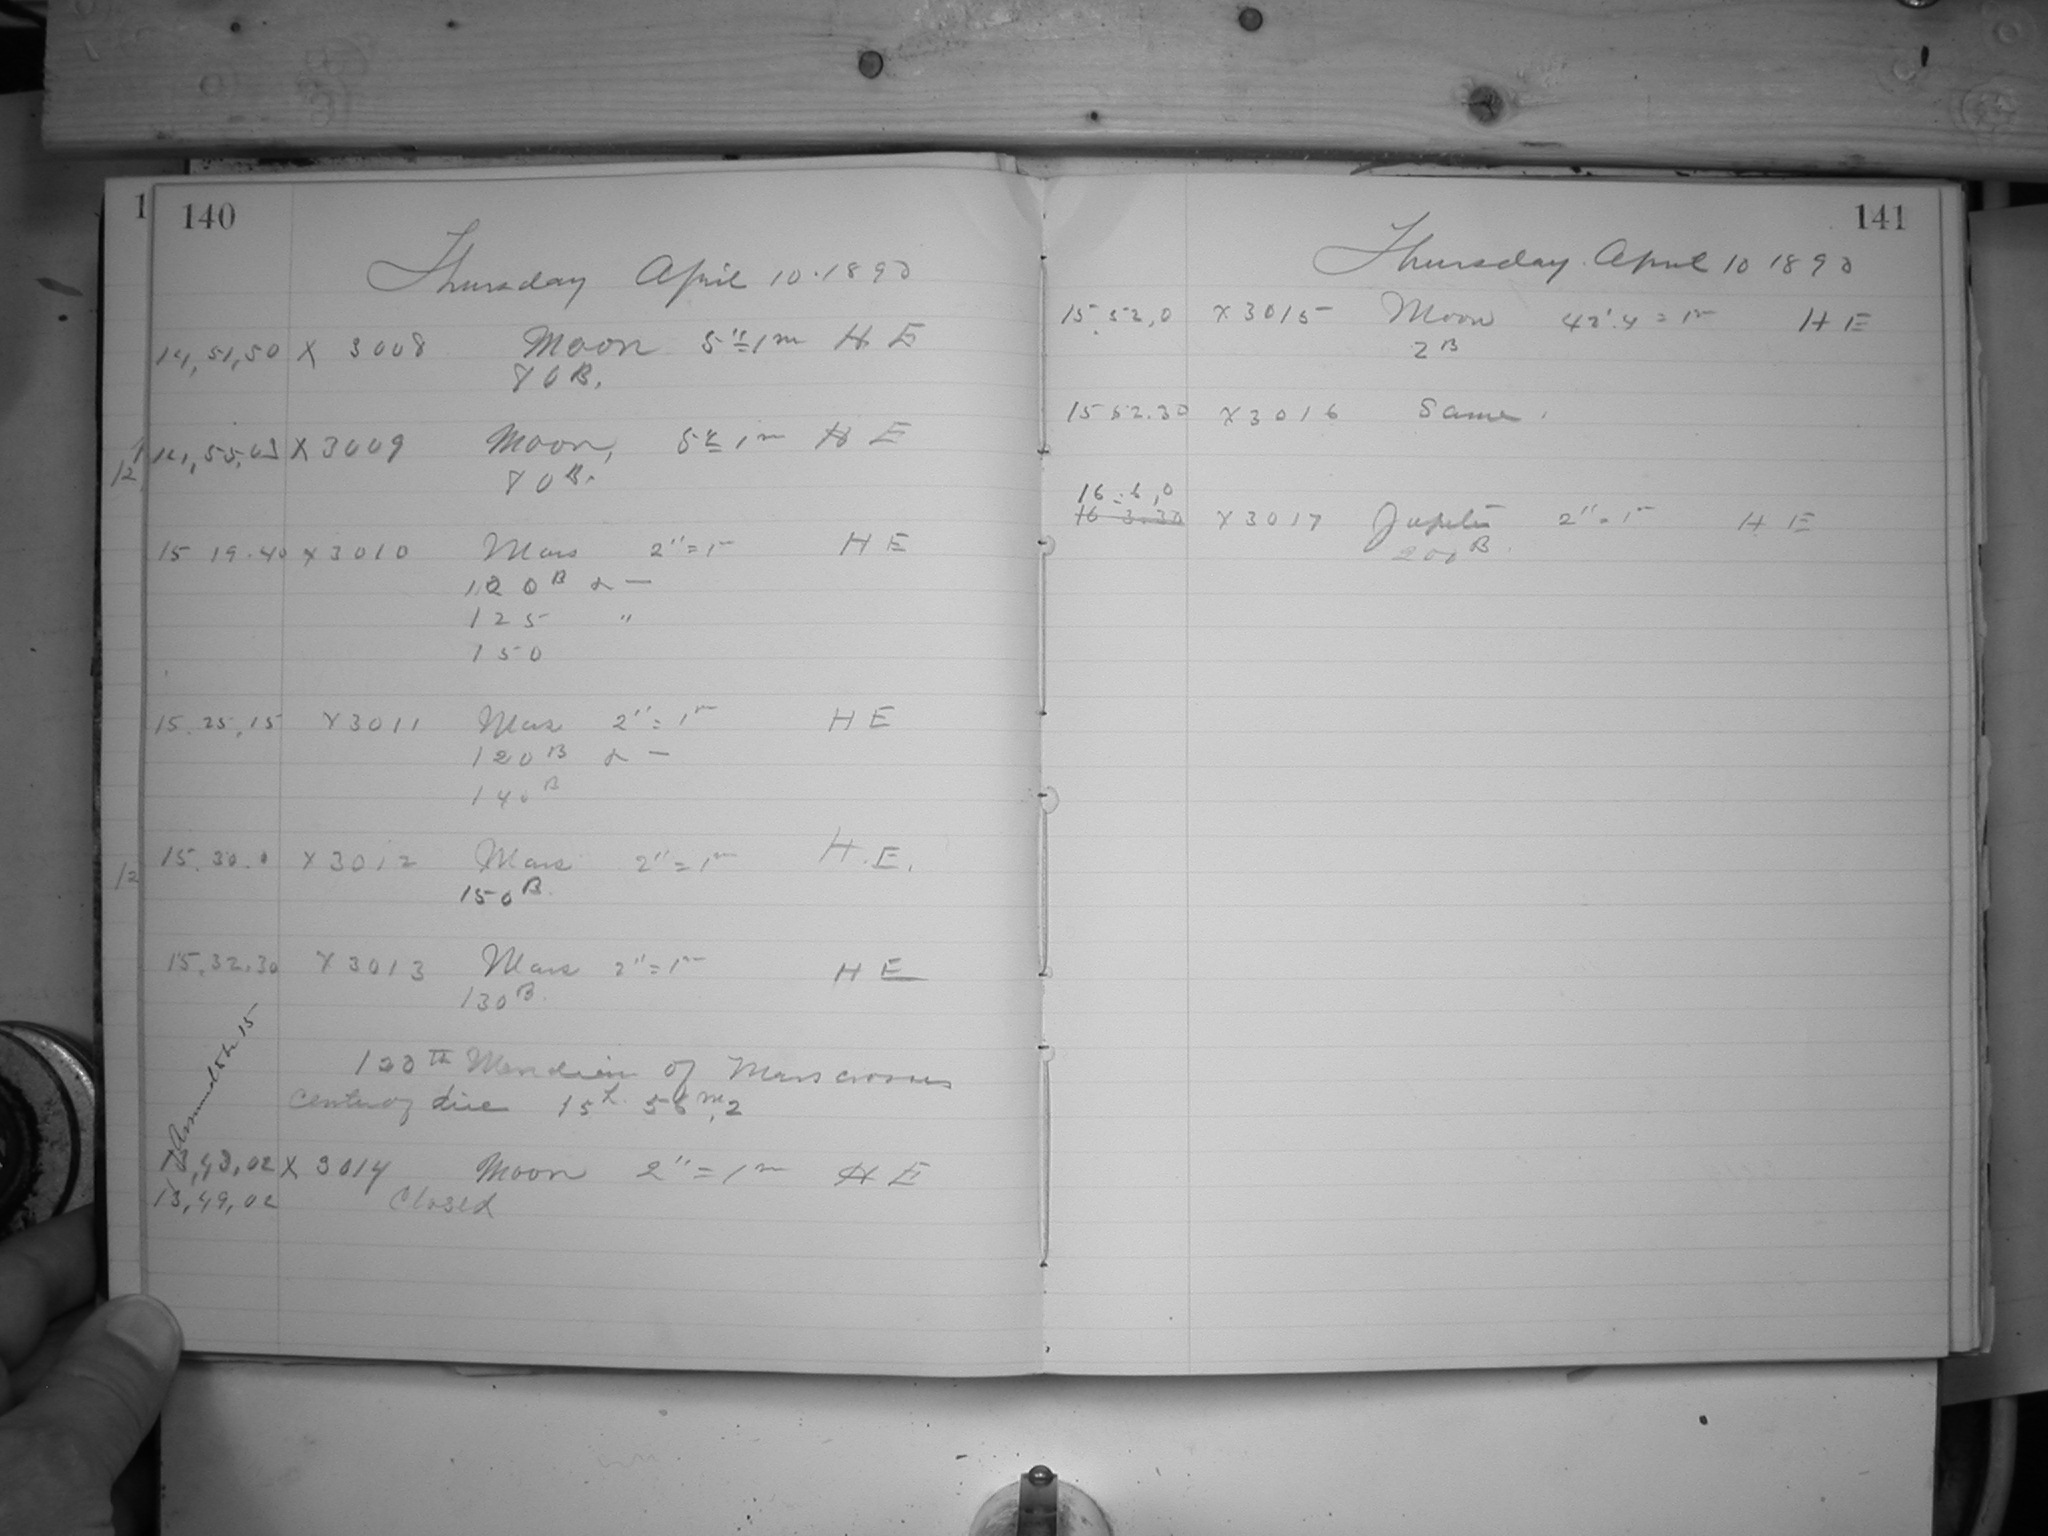 140
Thursday April 10. 1890
14,51,50 X 3008 Moon 5"=1m H E
80B.
14,55,03 X 3009 Moon, 5"=1m H E
80B.
15 19.40 X 3010 Mars 2"=1m H E
120B & —
125 "
150
15.25.15 X 3011 Mars 2"=1m H E
120B & —
140B
15.30.0 X 3012 Mars 2"=1m H.E.
150B.
15.32.30 X 3013 Mars 2"=1m H E
130B.
Assumed to be 15
100th Meridian of Mars crosses
center of disc 15h. 56m.2
13,43,02 X 3014 Moon 2"=1m H E
13,49,02 Closed
12
12
1
141
Thursday. April 10 1890
15.52,0 X 3015 Moon 42'.4=1m H E
2B
15 52.30 X 3016 Same.
16.6.0
16 3.30 X 3017 Jupiter 2"=1m H E
200B.